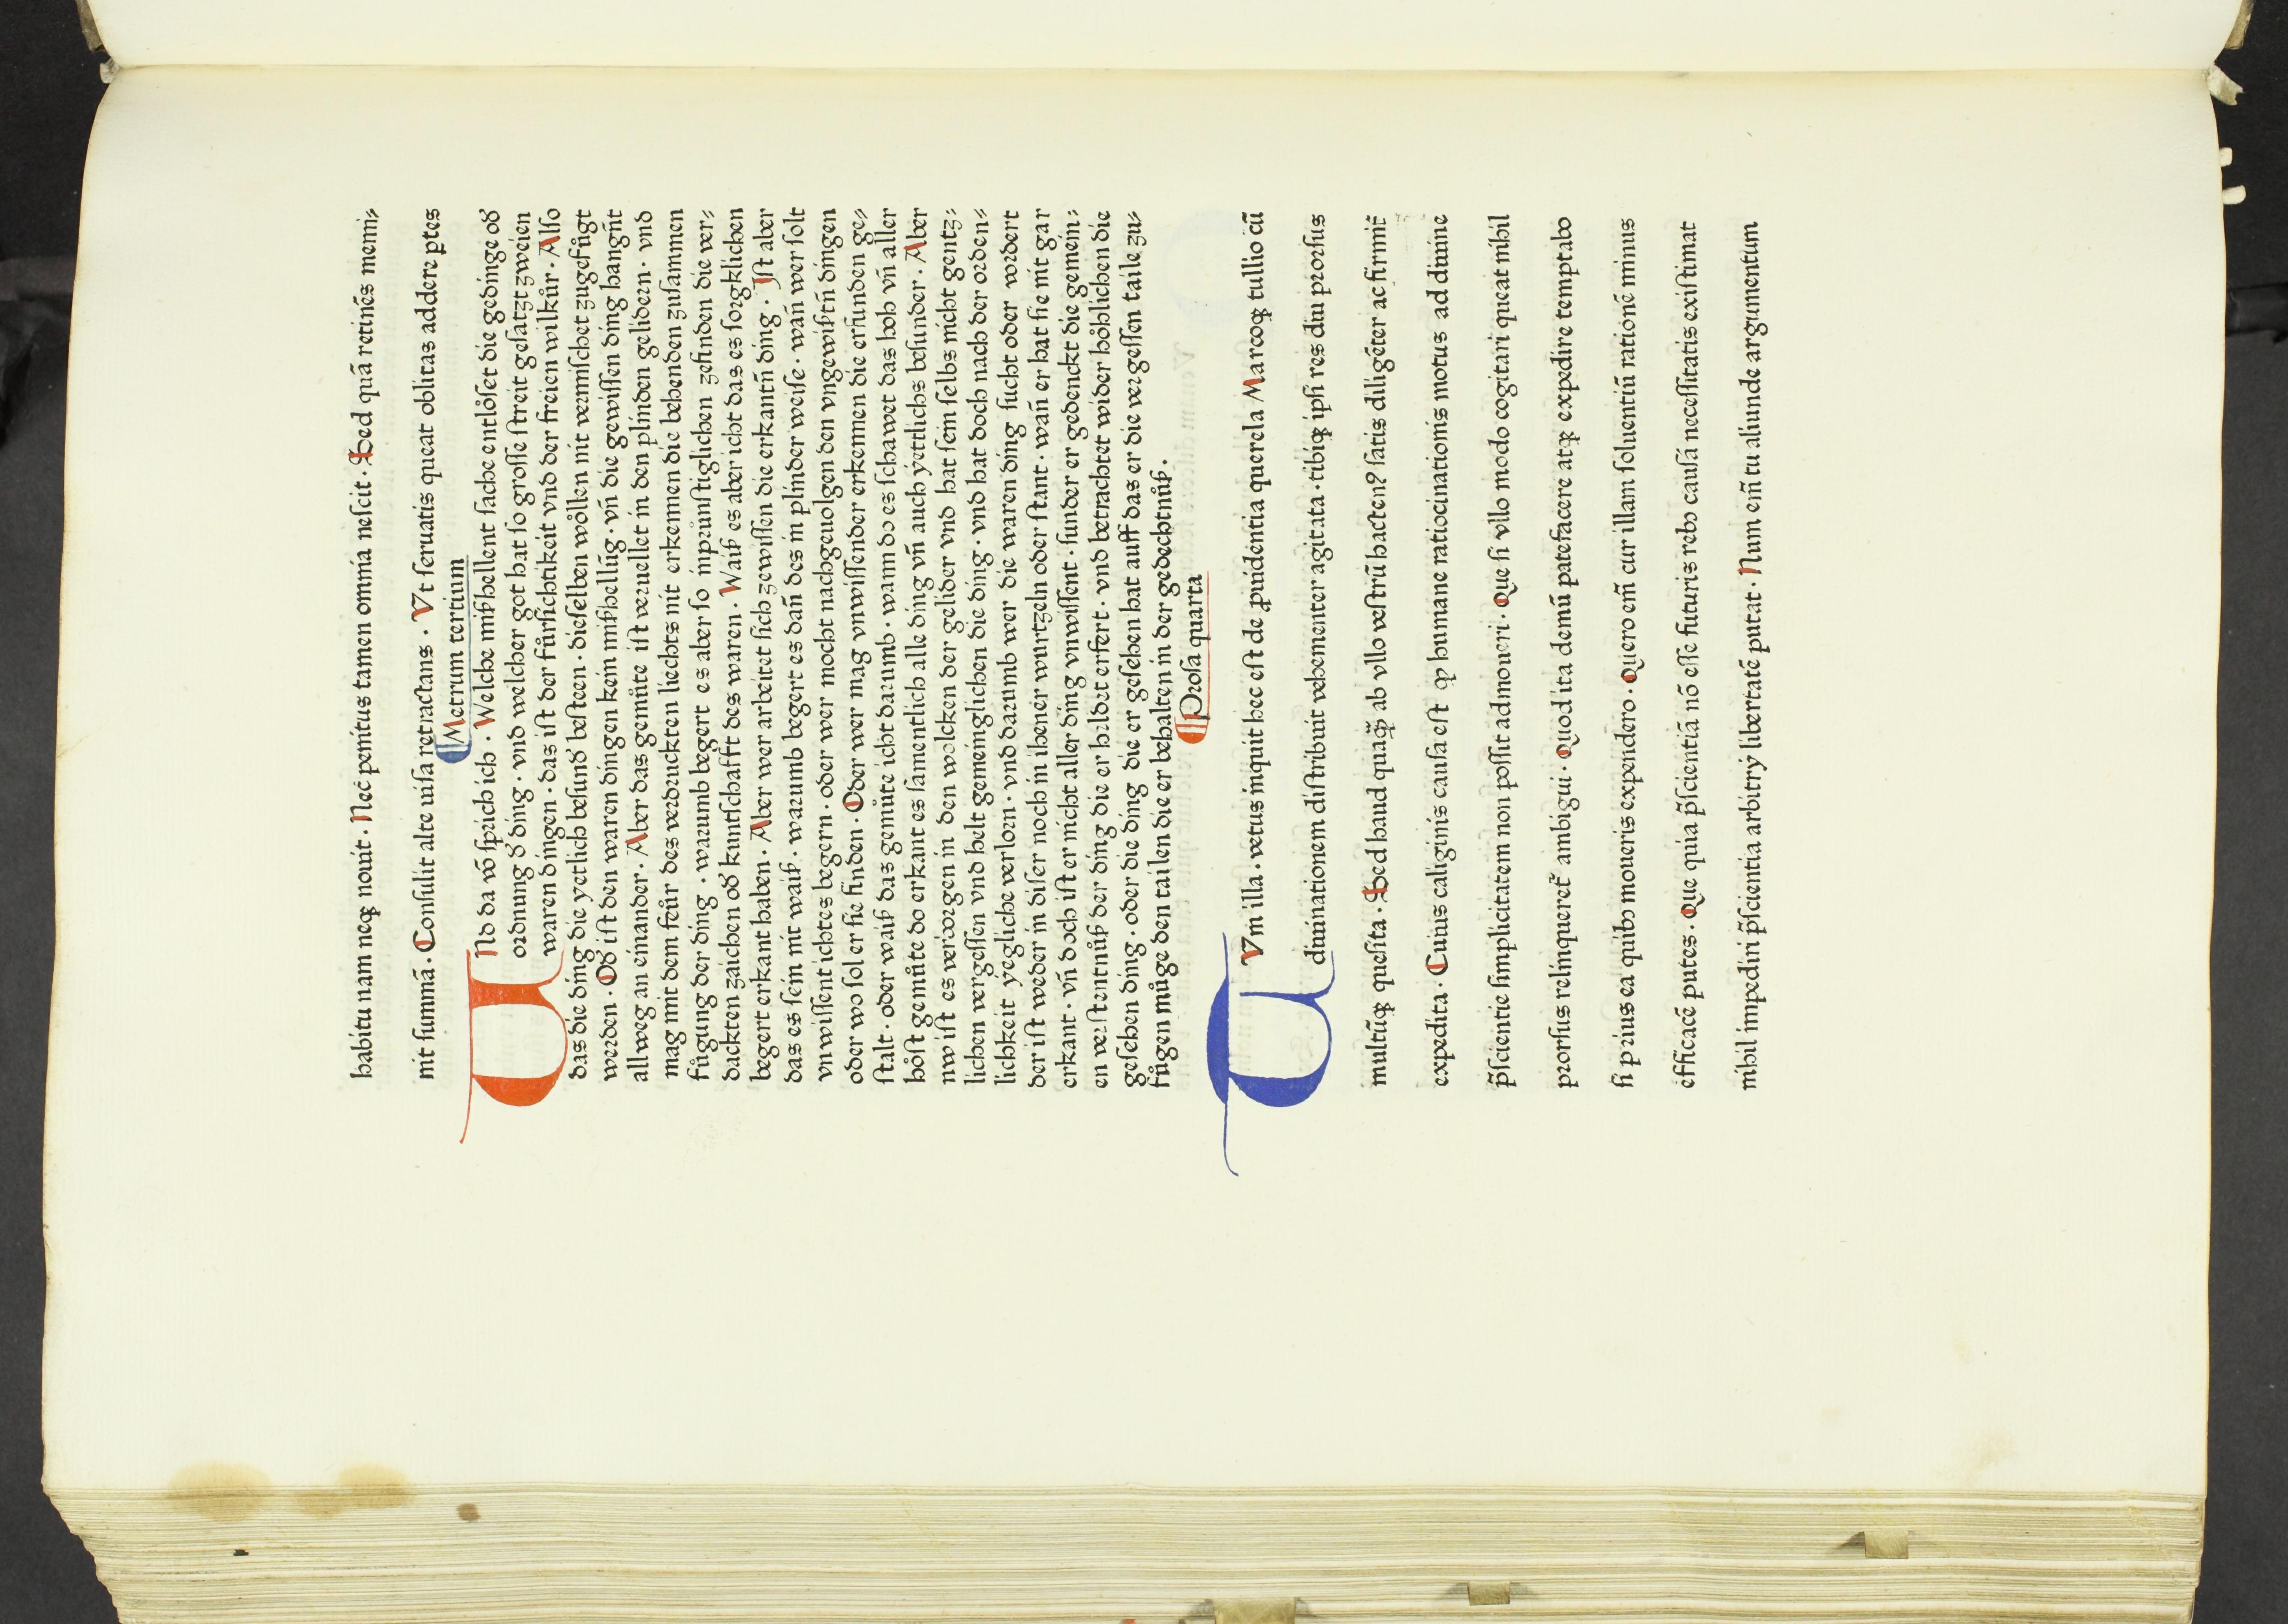 habitu nam neqꝫ nouit · Nec̄ penitus tamen omnia neſcit · Sed quā retinēs memi⸗
nit ſummā · Conſulit alte uiſa retractans · Vt ſeruatis queat oblitas addere ꝑtes
¶ Metrum tertium
UNd da vō ſprich ich · Welche miſzhellent ſache entlőſet die gedinge oď
ordnung ď ding · vnd welcher got hat ſo groſſe ſtreit geſatzt zweien
waren dingen · das iſt der fůrſichtikeit vnd der freien wilkůr · Alſo
das die ding die yetlich beſunď beſteen · dieſelben wőllen nit vermiſchet zugefůgt
werden · Oď iſt den waren dingen kein miſzhellūg · vn̄ die gewiſſen ding hangn̄t
allweg an einander · Aber das gemůte iſt veruellet in den plinden gelidern · vnd
mag mit dem feůr des verdruckten liechts nit erkennen die behenden zuſammen
fůgung der ding · warumb begert es aber ſo inprünſtiglichen zefinden die ver⸗
dackten zaichen oď kuntſchafft des waren · Waiſz es aber icht das es ſorgklichen
begert erkant haben · Aber wer arbeitet ſich zewiſſen die erkantn̄ ding · Iſt aber
das es ſein nit waiſz · warumb begert es dan̄ des in plinder weiſe · wan̄ wer ſolt
vnwiſſent ichtes begern · oder wer mocht nachgeuolgen den vngewiſztn̄ dingen
oder wo ſol er ſie finden · Oder wer mag vnwiſſender erkennen die erfunden ge⸗
ſtalt · oder waiſz das gemůte icht darumb · wann do es ſchawet das hoh vn̄ aller
hőſt gemůte do erkant es ſamentlich alle ding vn̄ auch ýettlichs beſunder · Aber
nw iſt es verporgen in den wolcken der gelider vnd hat ſein ſelbs nicht gentz⸗
lichen vergeſſen vnd helt gemeinglichen die ding · vnd hat doch nach der orden⸗
lichkeit ýegliche verlorn · vnd darumb wer die waren ding ſucht oder vordert
der iſt weder in diſer noch in ihener wurtzeln oder ſtant · wan̄ er hat ſie nit gar
erkant · vn̄ doch iſt er nicht aller ding vnwiſſent · ſunder er gedenckt die gemein⸗
en verſtentnůſz der ding die er haldet erfert · vnd betrachtet wider hőhlichen die
geſehen ding · oder die ding die er geſehen hat auff das er die vergeſſen taile zu⸗
fůgen můge den tailen die er behalten in der gedechtnůſz ·
¶ Proſa quarta
UVm illa · vetus inquit hec eſt de ꝓuidentia querela Marcoqꝫ tullio cū
diuinationem diſtribuit vehementer agitata · tibiqꝫ ipſi res diu prorſus
multūqꝫ queſita · Sed haud quaꝙ̄ ab vllo veſtrū hacten? ſatis diligēter ac firmit̄
expedita · Cuius caliginis cauſa eſt ꝙ humane ratiocinationis motus ad diuine
p̄ſcientie ſimplicitatem non poſſit admoueri · Que ſi vllo modo cogitari queat nihil
prorſus relinqueret̄ ambigui · Quod ita demū patefacere atqꝫ expedire temptabo
ſi prius ea quibꝰ moueris expendero · Quero em̄ cur illam ſoluentiū rationē minus
efficacē putes · Que quia p̄ſcientiā nō eſſe futuris rebꝰ cauſā neceſſitatis exiſtimat
nihil impediri p̄ſcientia arbitrý libertatē putat · Num em̄ tu aliunde argumentum